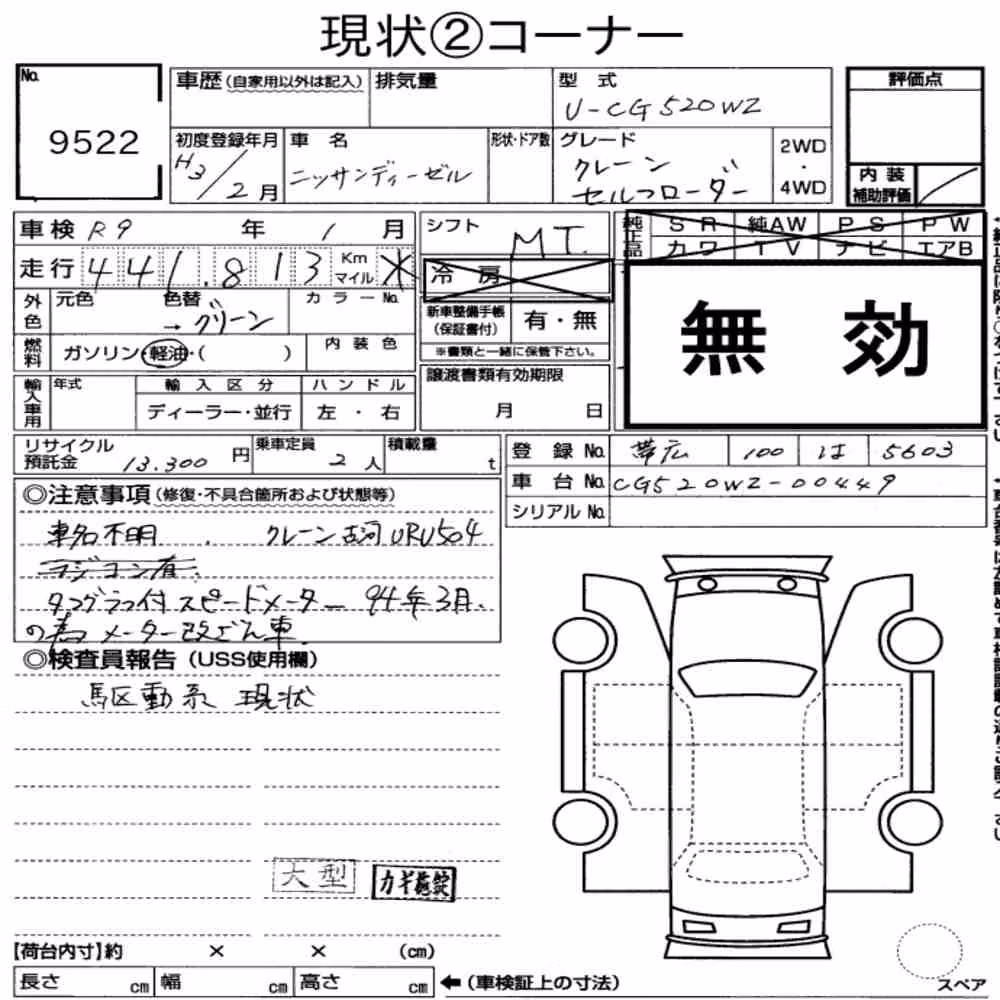 現状②コーナー
No.
9522
車歴(自家用以外は記入)
排気量
型式
U-CG520WZ
評価点
初度登録年月
H3/2月
車名
ニッサンディーゼル
形状・ドア数
グレード
クレーン
セルフローダー
2WD
・
4WD
内装
補助評価
車検 R9 年 1 月
シフト
MT.
純正品
SR 純AW PS PW
カワ TV ナビ エアB
走行 441.813 Km マイル
冷房
外色
元色
色替
→グリーン
カラーNo.
新車整備手帳
(保証書付)
有・無
※書類と一緒に保管下さい。
無効
燃料
ガソリン・軽油・( )
内装色
譲渡書類有効期限
月 日
輸入車用
年式
輸入区分
ディーラー・並行
ハンドル
左・右
リサイクル
預託金
13.300円
乗車定員
2人
積載量
t
登録No. 帯広 100 は 5603
車台No. CG520WZ-00449
シリアルNo.
◎注意事項(修復・不具合箇所および状態等)
車名不明 . クレーン古河URU504
ラジコン有.
タコグラフ付スピードメーター 94年3月.
の為メーター改ざん車.
◎検査員報告(USS使用欄)
駆動系 現状
大型
カギ施錠
【荷台内寸】約 × × (cm)
長さ cm 幅 cm 高さ cm ←(車検証上の寸法)
スペア